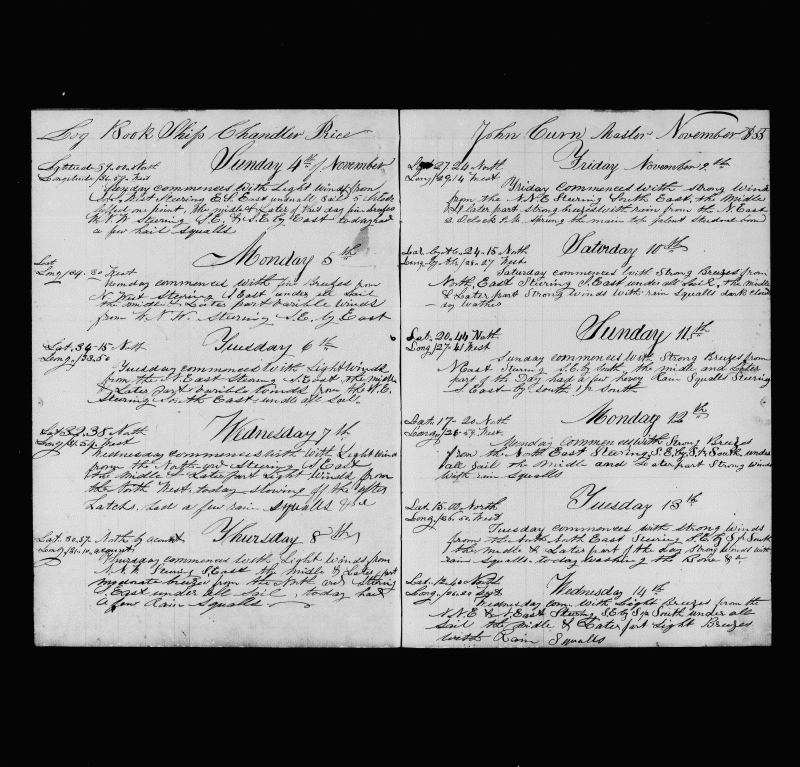 Log Book Ship Chandler Price
Sunday 4th of November
Lattitude 37.00 North
Longitude 136.57 West
Sunday commences with Light winds from
West Steering E.S. East under all sail 5 o'clock
one point, the middle & Later of this day fine breezes
W.N.W Stering S.E. & S.E. by East today had
a few hail Squalls
Monday 5th
Lat
Long 134.30 West
Monday commences with fine Breezes from
N. West Stering S East under all sail
the middle & Later part variable winds
from W.N.W. Stering S.E. by East
Tuesday 6th
Lat. 34-15 Noth
Long. 133.50
Tuesday commences with Light Winds
from the N. East Stering S. East, the middle
& Later part winds from the N.E.
Stering South East under all Sail.
Wednesday 7th
Lat 32.35 Noth
Long 131.54 West
Wednesday commences with Light Winds
from the North ard Steering S East
the middle & Later part Light Winds from
the North West. today Stowing off the after
Latch, had a few rain Squalls
Thursday 8th
Lat. 30.57. North by acount
Long 131.10. acount
Thursday commences with Light Winds from
N.W. Steering S. East the middle & Later part
moderate breezes from the North ard Stering
S. East under all Sail, today had
a few Rain Squalls
John Curn Master November 1855
Friday November 9th
Lat 27.24 North
Long 129.14 West
Friday commences with Strong Winds
from the N.N.E Steering South East, the middle
& Later part, strong breezes with rain from the N. East
2 Oclock P.M. sprung the main top galent Studard boom
Saturday 10th
Lat. by Ac. 24-15 North
Long. by Ac 128-27 West
Saturday commences with Strong Breezes from
North East Steering S. East under all Sail, the middle
& Later part Strong Winds with rain Squalls dark cloud
dy wather
Sunday 11th
Lat. 20.44 Noth
Long 127-41 West
Sunday commences with Strong Breezes from
N East Sturing S.E. by South the midle and Later
part of the Day had a few hevey Rain Squals Steering
S East by South 1/2 South
Monday 12th
Lath 17-20 Noth
Longd 126-54 West.
Monday commences with Strong Breezes
from the North East Steering S.E. by S 1/2 South under
all Sail the Middle and Later part Strong Winds
with rain Squalls
Tuesday 13th
Lat 15.00 North
Long 126.50 West
Tuesday commences with Strong winds
from the North East Steering S.E. by S 1/2 South
the midle & Later part of the day Strong winds with
rain Squalls today washing the Bone &c
Wednesday 14th
Lat. 12.40 North
Long. 126.20 West
Wednesday com. with Light Breezes from the
N.N.E & East Steering S.E by S 1/2 South under all
Sail the midle & Later part Light Breezes
with Rain Squalls